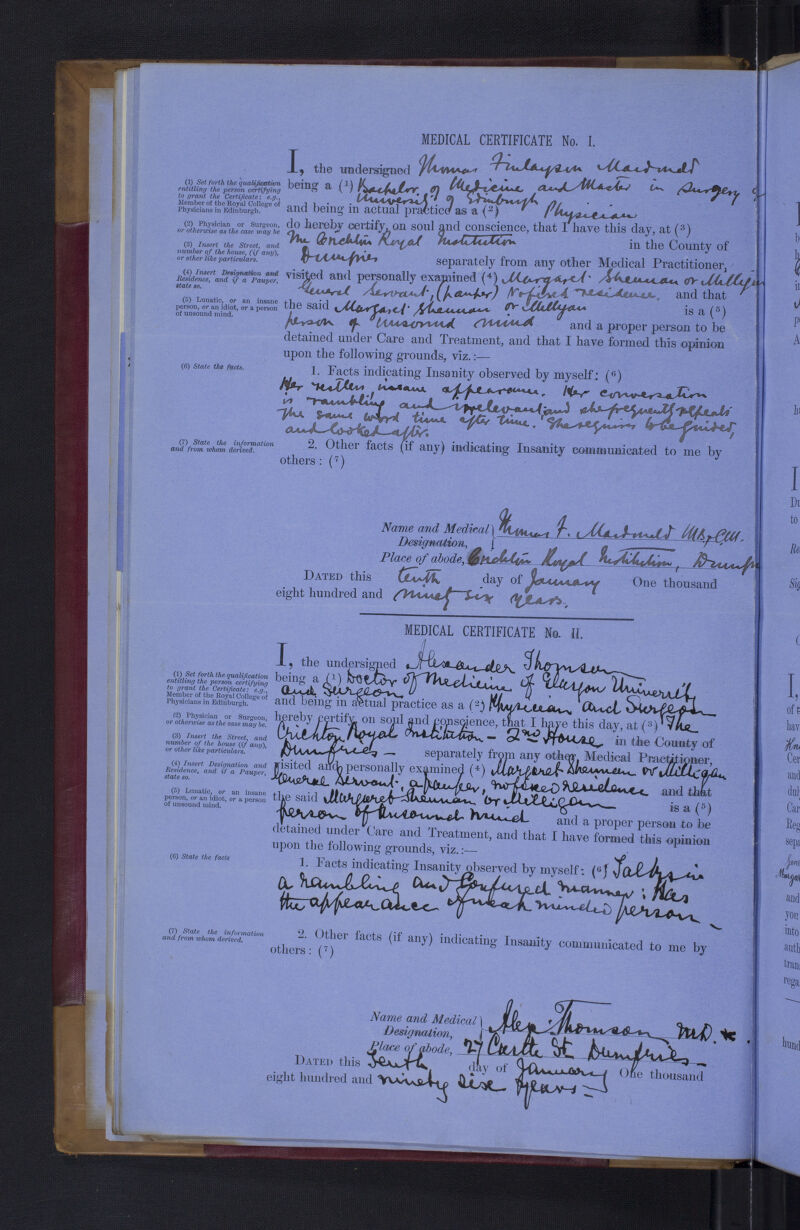 MEDICAL CERTIFICATE No. I.
I, the undersigned Thomas Finlayson Macdonald
(1) Set forth the qualification entitling the person certifying to grant the Certificate: e.g., Member of the Royal College of Physicians in Edinburgh.
being a (1) Bachelor of Medicine and Master in Surgery of
University of Edinburgh
and being in actual practice as a (2) Physician
(2) Physician or Surgeon, or otherwise as the case may be
do hereby certify, on soul and conscience, that I have this day, at (3)
(3) Insert the Street, and number of the house, (if any), or other like particulars.
The Crichton Royal Institution in the County of
Dumfries separately from any other Medical Practitioner,
(4) Insert Designation and Residence, and if a Pauper, state so.
visited and personally examined (4) Margaret Shennan or Milligan
General Servant, (pauper) No fixed residence, and that
(5) Lunatic, or an insane person, or an idiot, or a person of unsound mind.
the said Margaret Shennan or Milligan is a (5)
person of unsound mind and a proper person to be
detained under Care and Treatment, and that I have formed this opinion
upon the following grounds, viz.:—
(6) State the facts.
1. Facts indicating Insanity observed by myself: (6)
Her restless, insane appearance. Her conversation
is rambling and irrelevant, and she frequently repeats
the same word time after time. She requires to be guided,
and looked after.
(7) State the information and from whom derived.
2. Other facts (if any) indicating Insanity communicated to me by
others: (7)
Name and Medical Designation, Thomas F. Macdonald M.B., C.M.
Place of abode, Crichton Royal Institution, Dumfries
DATED this tenth day of January One thousand
eight hundred and ninety six years.
MEDICAL CERTIFICATE No. II.
I, the undersigned Alexander Thomson
(1) Set forth the qualification entitling the person certifying to grant the Certificate: e.g., Member of the Royal College of Physicians in Edinburgh.
being a (1) Doctor of Medicine of Glasgow University
and Surgeon
and being in actual practice as a (2) Physician and Surgeon
(2) Physician or Surgeon, or otherwise as the case may be.
hereby certify, on soul and conscience, that I have this day, at (3) The
(3) Insert the Street, and number of the house (if any), or other like particulars.
Crichton Royal Institution - 2nd House in the County of
Dumfries — separately from any other Medical Practitioner,
(4) Insert Designation and Residence, and if a Pauper, state so.
visited and personally examined (4) Margaret Shennan or Milligan
General Servant, a pauper, no fixed residence and that
(5) Lunatic, or an insane person, or an idiot, or a person of unsound mind.
the said Margaret Shennan or Milligan is a (5)
person of unsound mind and a proper person to be
detained under Care and Treatment, and that I have formed this opinion
upon the following grounds, viz.:—
(6) State the facts
1. Facts indicating Insanity observed by myself: (6) Talks in
a rambling and confused manner; has
the appearance of weak minded person —
(7) State the information and from whom derived.
2. Other facts (if any) indicating Insanity communicated to me by
others: (7)
Name and Medical Designation, Alex. Thomson M.D.
Place of abode, 27 Castle St Dumfries —
DATED this Tenth day of January One thousand
eight hundred and ninety six years —